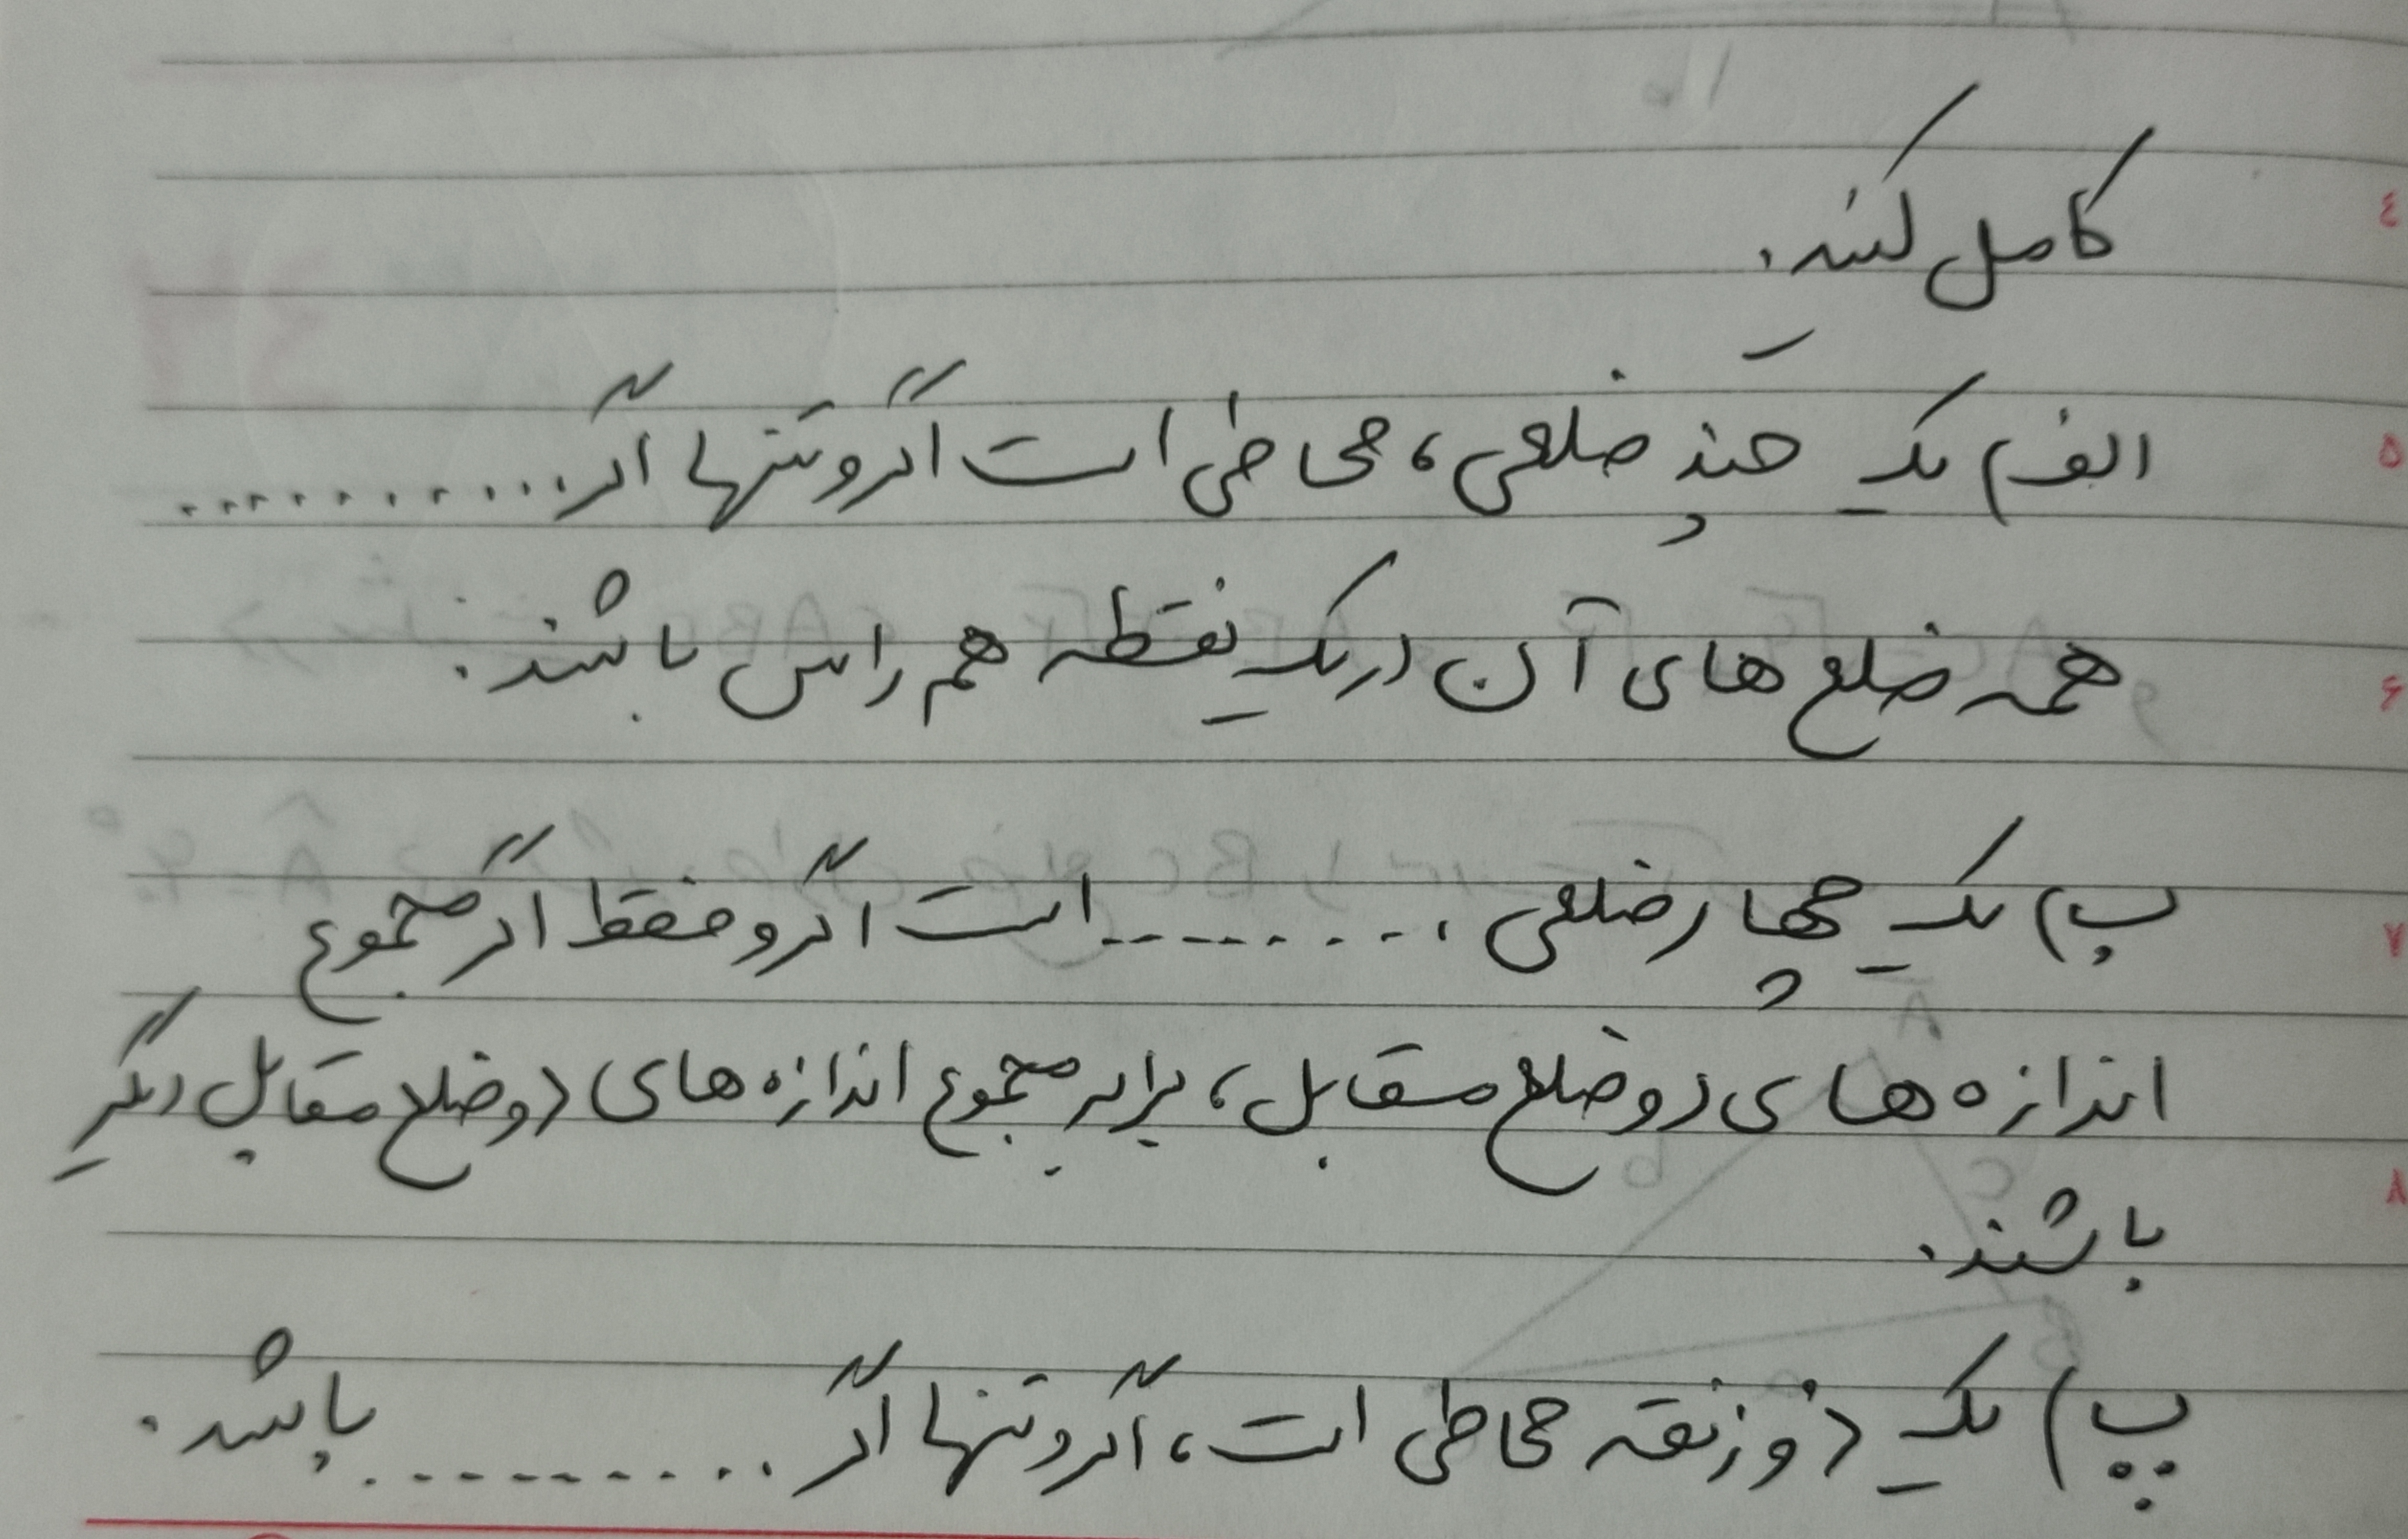 کامل کنید.
الف) یک چند ضلعی، محاطی است اگر و تنها اگر............
همه ضلع های آن در یک نقطه هم راس باشند.
ب) یک چهارضلعی ..........است اگر و فقط اگر مجموع
اندازه های دو ضلع مقابل، برابر مجموع اندازه های دو ضلع مقابل دیگر
باشند.
پ) یک ذوزنقه محاطی است، اگر و تنها اگر ........... باشد.
۴
۵
۶
۷
۸